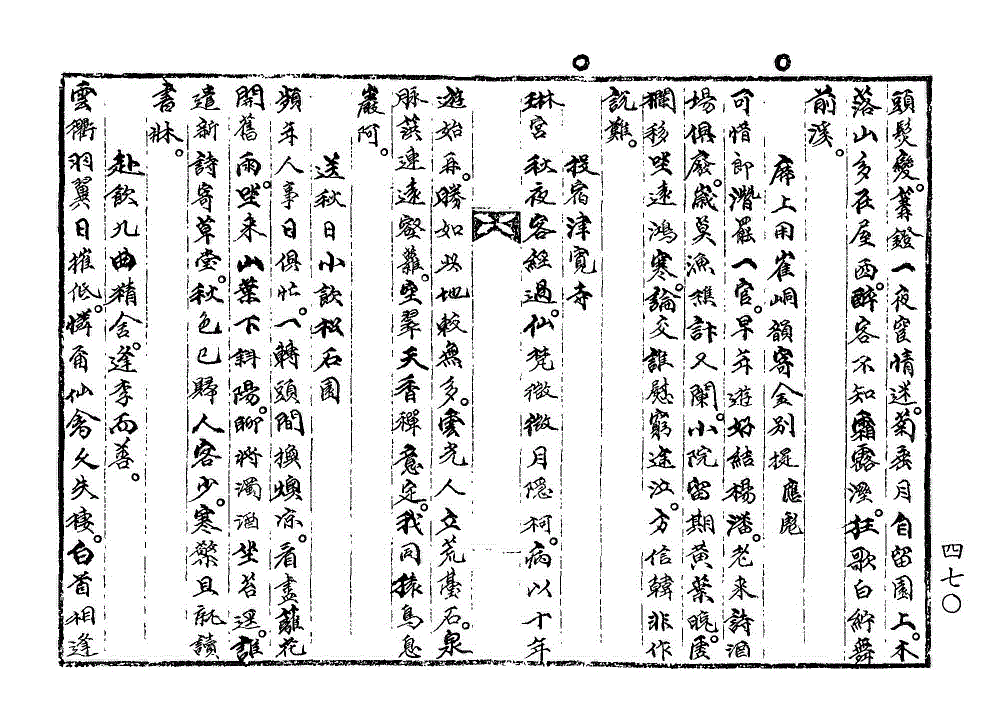 頭髮變。篝鐙一夜客情迷。菊垂月自留園上。木
落山多在屋西。醉客不知霜露溼。狂歌白紵舞
前溪。
席上用崔峒韻寄金別提 應彪
可惜郎潛罷一官。早年遊好結楊潘。老来詩酒
場俱廢。歲莫漁樵計又闌。小院留期黃葉晚。虛
欄移坐遠鴻寒。論交誰慰窮途泣。方信韓非作
說難。
投宿津寬寺
琳宮秋夜客經過。仙梵微微月隱柯。病以十年
遊始再。勝如此地較無多。雲光人立荒臺石。泉
脉蔬連遠壑蘿。空翠天香禪意定。我同猿鳥息
巖阿。
送秋日小飲松石園
頻年人事日俱忙。一轉頭間換燠凉。看盡籬花
開舊雨。坐来山葉下斜陽。聊將濁酒坐苔逕。誰
遣新詩寄草堂。秋色已歸人客少。寒檠且就讀
書牀。
赴飲九曲精舍。逢李而善。
雲衢羽翼日摧低。憐爾仙禽久失棲。白首相逢
四七〇